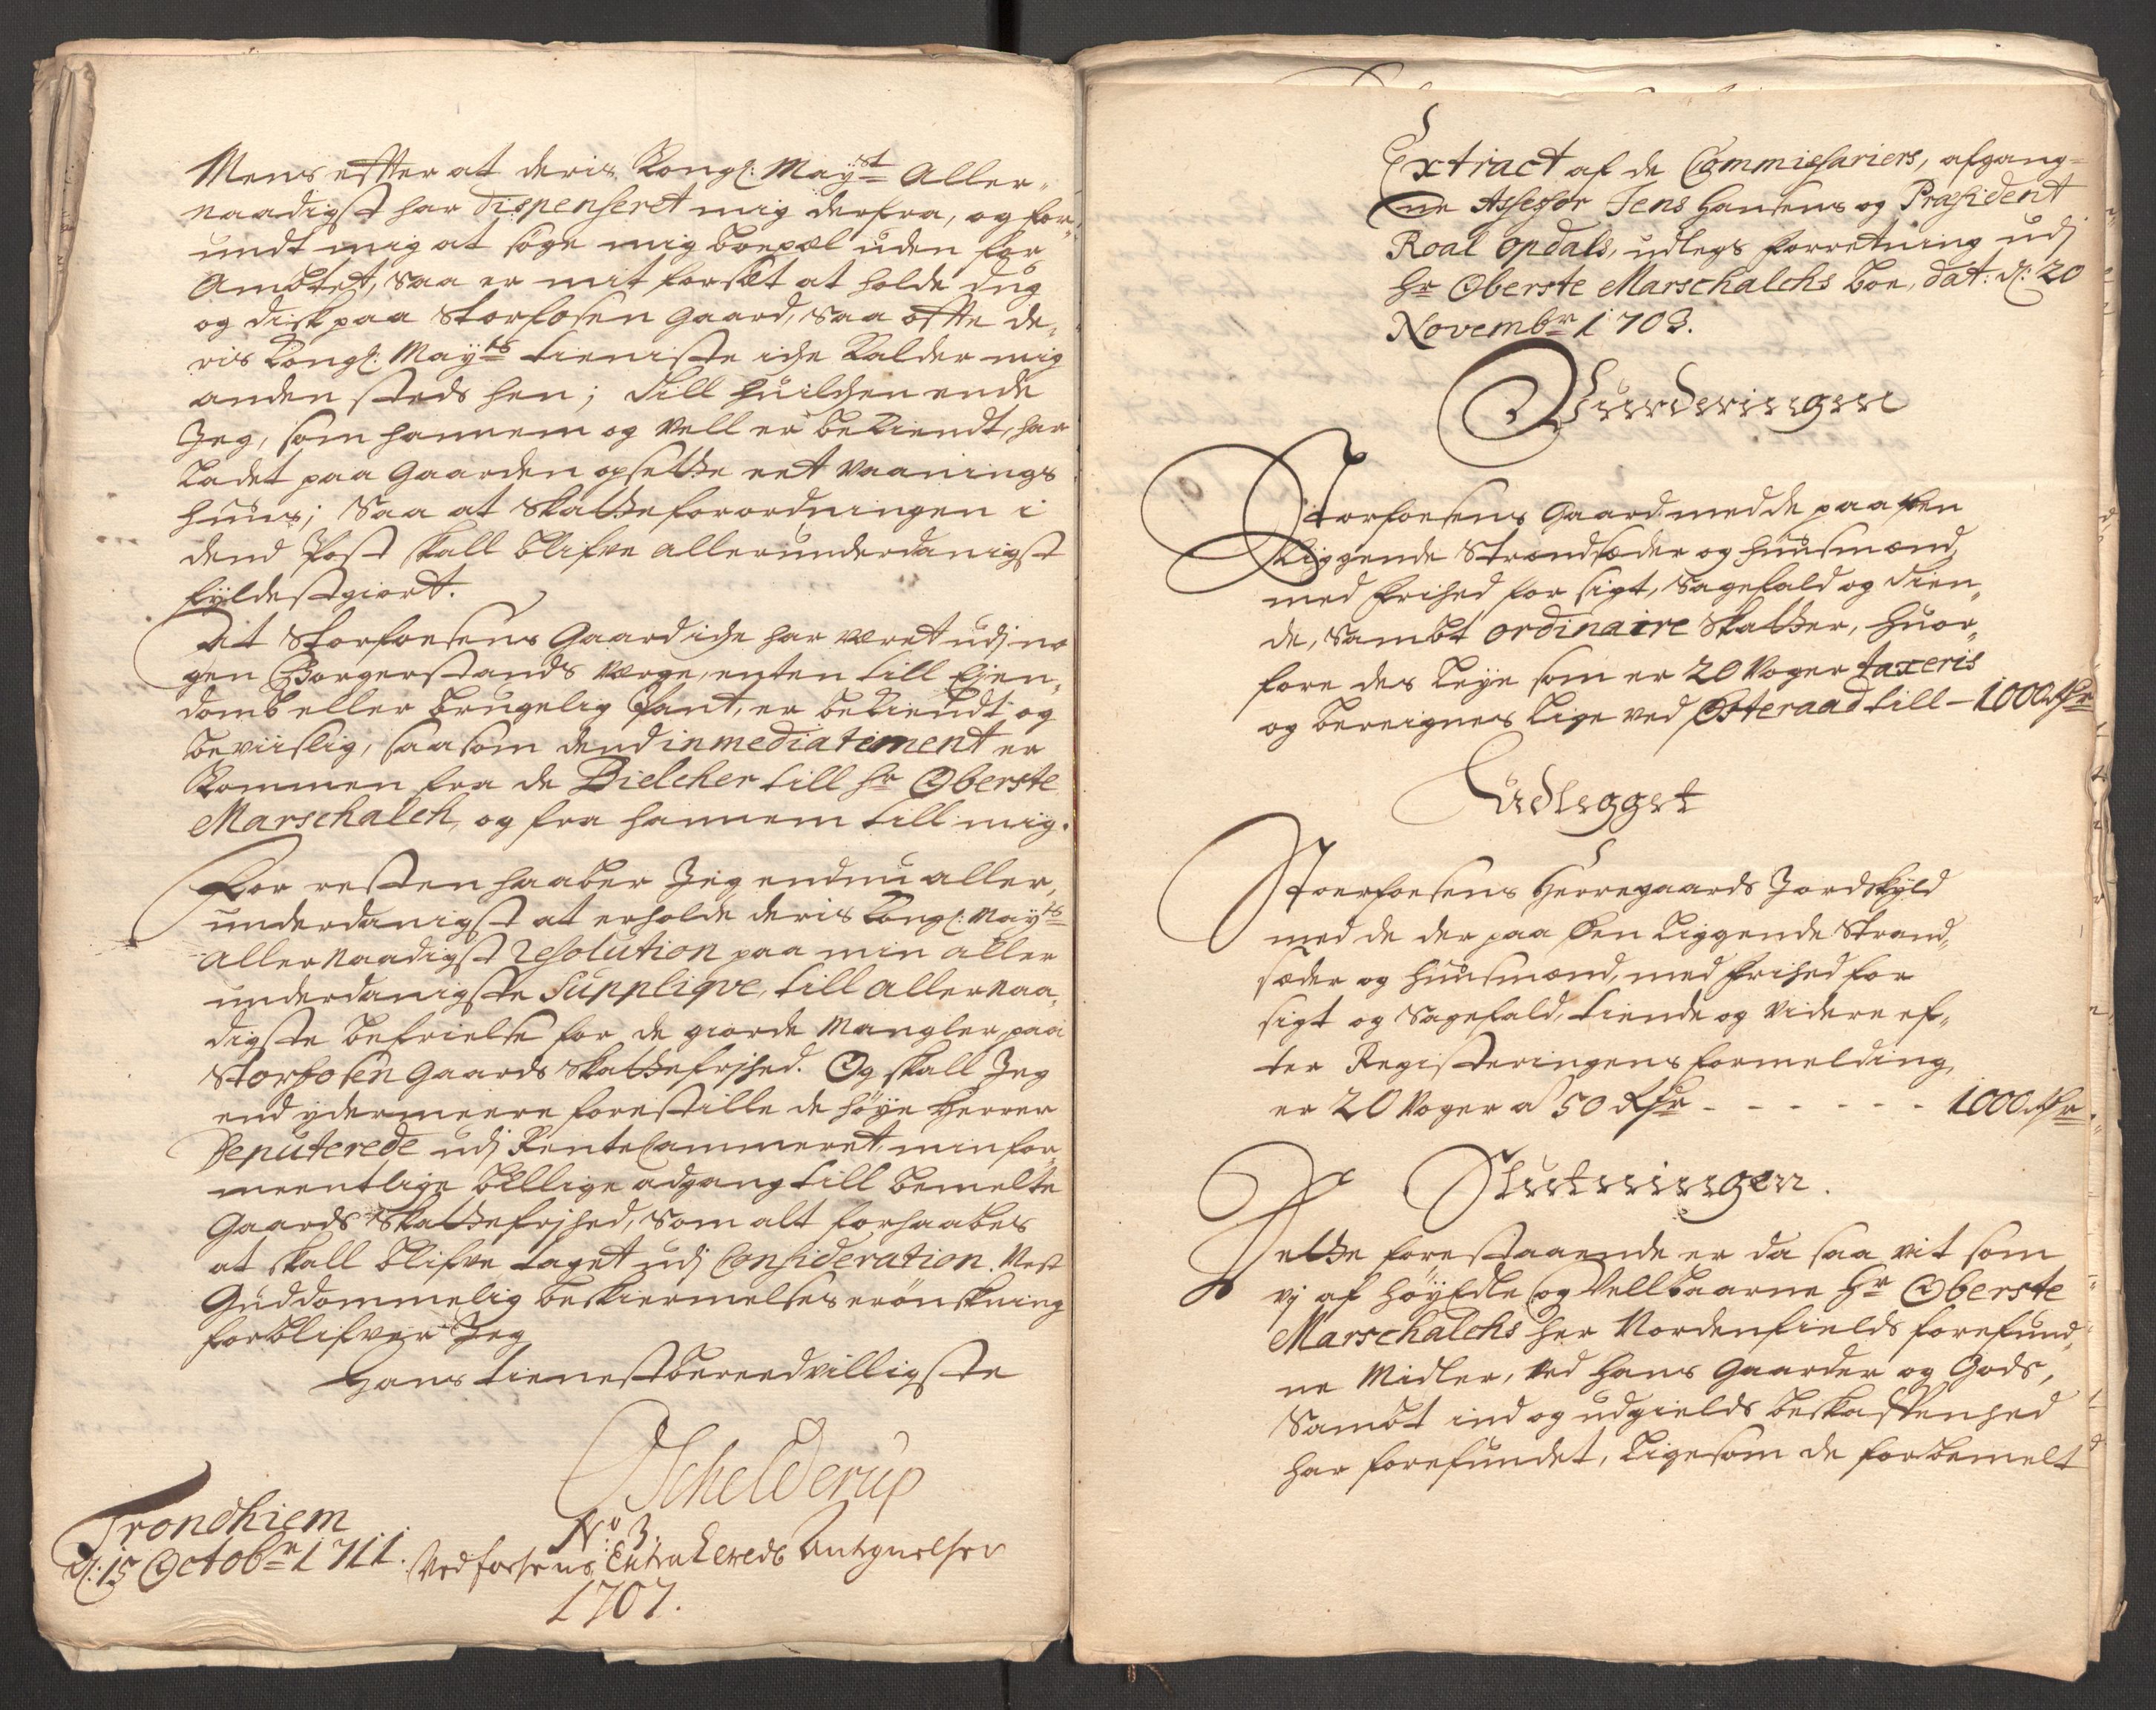 Mens effter at deris Kongl: Mayst Aller-
naadigst har dispenseret mig derfra, og for-
undt mig at søge mig boepæl uden for
Ambtet, saa er mit forsæt at holde dug
og disk paa Storfosen Gaard, saa offte de-
ris Kongl: Mayts tieniste iche kalder mig
anden steds hen; till huilchen ende
Jeg, som hannem og vell er bekiendt, har
ladet paa Gaarden opsette eet vaanings
huus; Saa at Skatteforordningen i
dend Post skall blifve allerunderdanigst
fyldestgiort.
At Storfoesens Gaard iche har været udj no
gen Borgerstands værge, enten till Ejen-
domb eller brugelig Pant, er bekiendt og
beviislig, saasom dend inmediatement er
kommen fra de Bielcher till Hr Oberste
Marschalch, og fra hannem till mig.
For resten haaber Jeg endnu aller-
underdanigst at erholde deris Kongl: Mayts
allernaadigst resolution paa min aller
underdanigste Supplique, till allernaa-
digste befrielse for de giorde Mangler paa
Storfosen Gaards Skattefrjhed. Og skall Jeg
end ydermeere forestille de høye Herrer
Deputerede udj Rente Cammeret, min for-
meentlige billige adgang till bemelte
Gaards Skattefrjhed, som alt forhaabes
at skall blifve taget udj Consideration. Nest
Guddommelig beskiermelses erønskning
forblifver Jeg
Hans tienestbereedvilligste
Schelderup
Trondhiem
d: 15 Octobr 1711.
No 3.
Ved fosens Extra herreds Antegnelser
1707.
Extract af de Commissariers, afgang-
ne Assessor Jens Hansens og Præsident
Roal Opdals, udlegs forretning udj
Hr Oberste Marschalchs Boe, dat: d: 20
Novembr 1703.
Vurderingen
Storfoesens Gaard med de paa Øen
liggende Strandsæder og huusmænd,
med frihed for sigt, Sagefald og tien-
de, sambt ordinaire Skatter, huor-
fore des leye som er 20 Voger taxeris
og bereignes lige ved Østeraad till - 1000 Rdr
Udlegget
Storfoesens Herregaards Jordskyld
med de der paa Øen liggende Strand-
sæder og huusmænd, med frihed for
sigt og Sagefald, tiende og videre ef-
ter Registeringens formelding,
er 20 Voger a 50 Rdr - - - - - - 1000 Rdr
Slutningen.
Dette forestaaende er da saa vit som
vj af HøyEdle og Vellbaarne Hr Oberste
Marschalchs her Nordenfields forefund-
ne Midler, ved hans Gaarder og Gods,
Sambt ind og udgields beskaffenhed
har forefundet, ligesom de forbemelt